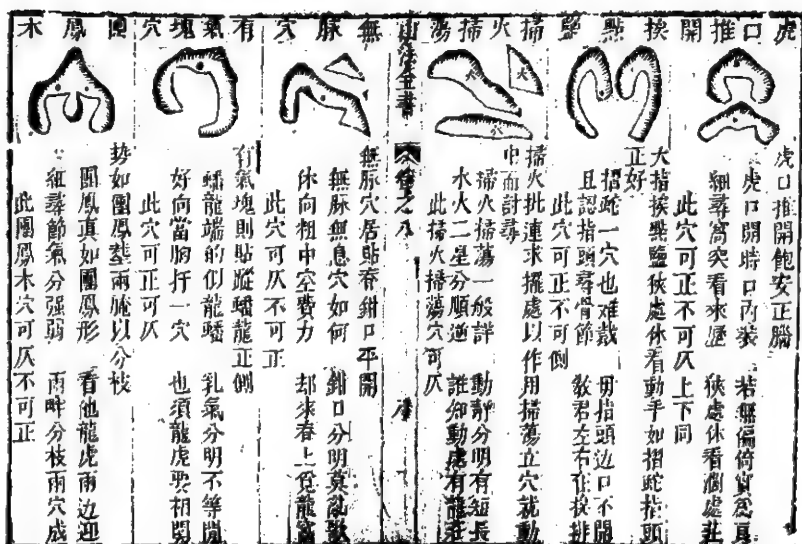 虎口推開
虎口推開飽安正腦
虎口開時口內裝　若無偏倚實為真
細尋窩突看來歷　狹處休看濶處莊
此穴可正不可仄上下同
挨點鹽
大指挨點鹽狹處休看動手如摺䠶指頭
正好
摺䠶一穴也难裁　毋指頭边口不開
且認指頭尋骨節　教君左右在挨排
此穴可正不可側
掃火掃蕩
掃火批連求擺處以作用掃蕩立穴就動
中而討尋
掃火掃蕩一般詳　動靜分明有短長
水火二星分順逆　誰知動處有龍莊
此掃火掃蕩穴可仄
山法全書
卷之八
無脉穴
無脉穴居貼脊鉗口平開
無脉無息穴如何　鉗口分明莫亂歌
休向粗中空費力　却求脊上覓龍窩
此穴可仄不可正
有氣塊穴
有氣塊則貼蹤蟠龍正側
蟠龍端的似龍蟠　乳氣分明不等閒
好向當胸扦一穴　也須龍虎要相関
此穴可正可仄
團鳳木
勢如團鳳葢兩腌以分枝
團鳳真如團鳳形　看他龍虎兩边迎
細尋節氣分强弱　兩畔分枝兩穴成
此團鳳木穴可仄不可正